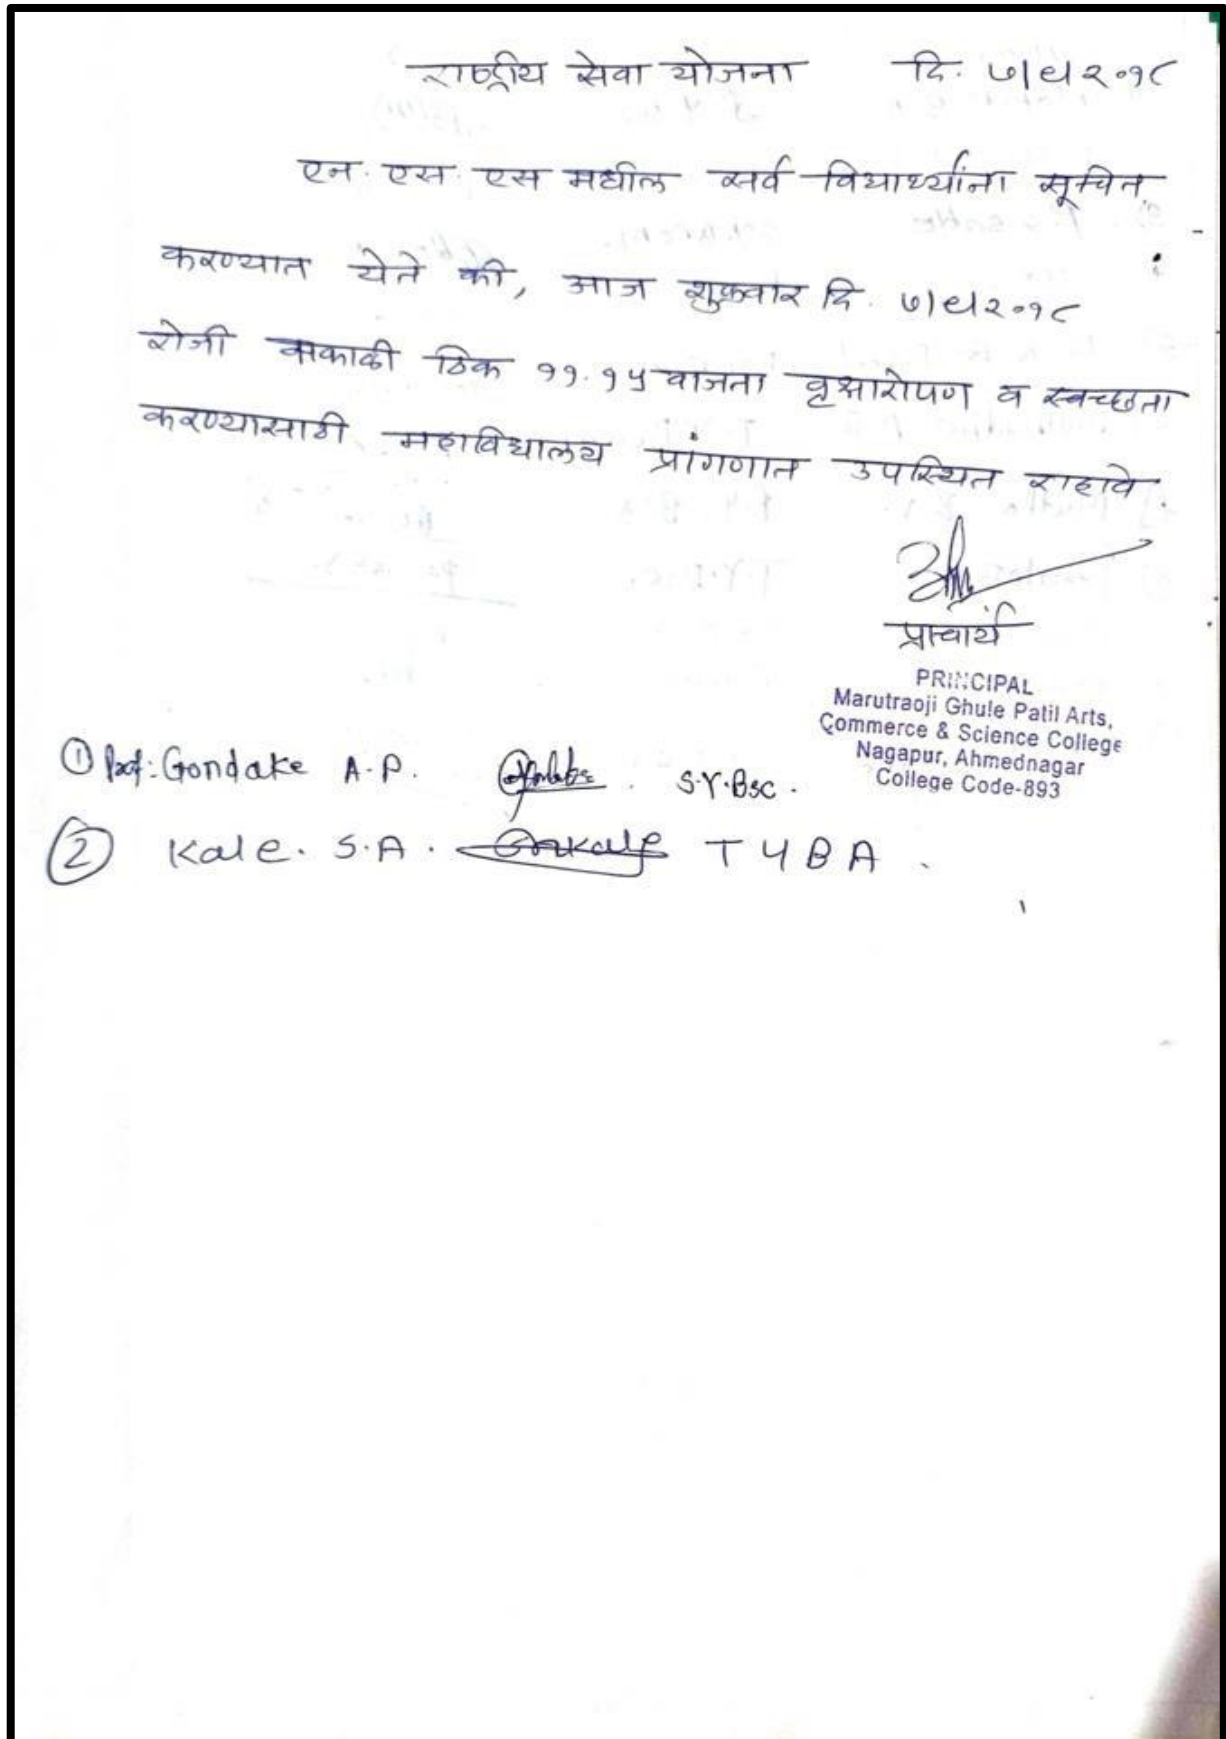 राष्ट्रीय सेवा योजना दि. ७/९/२०१८
एन. एस. एस मधील सर्व विद्यार्थ्यांना सूचित
करण्यात येते की, आज शुक्रवार दि. ७/९/२०१८
रोजी सकाळी ठिक ११.१५ वाजता वृक्षारोपण व स्वच्छता
करण्यासाठी महाविद्यालय प्रांगणात उपस्थित राहावे.
प्राचार्य
PRINCIPAL
Marutraoji Ghule Patil Arts,
Commerce & Science College
Nagapur, Ahmednagar
College Code-893
① Prof: Gondake A.P. S.Y.Bsc.
② Kale. S.A. T Y B A.